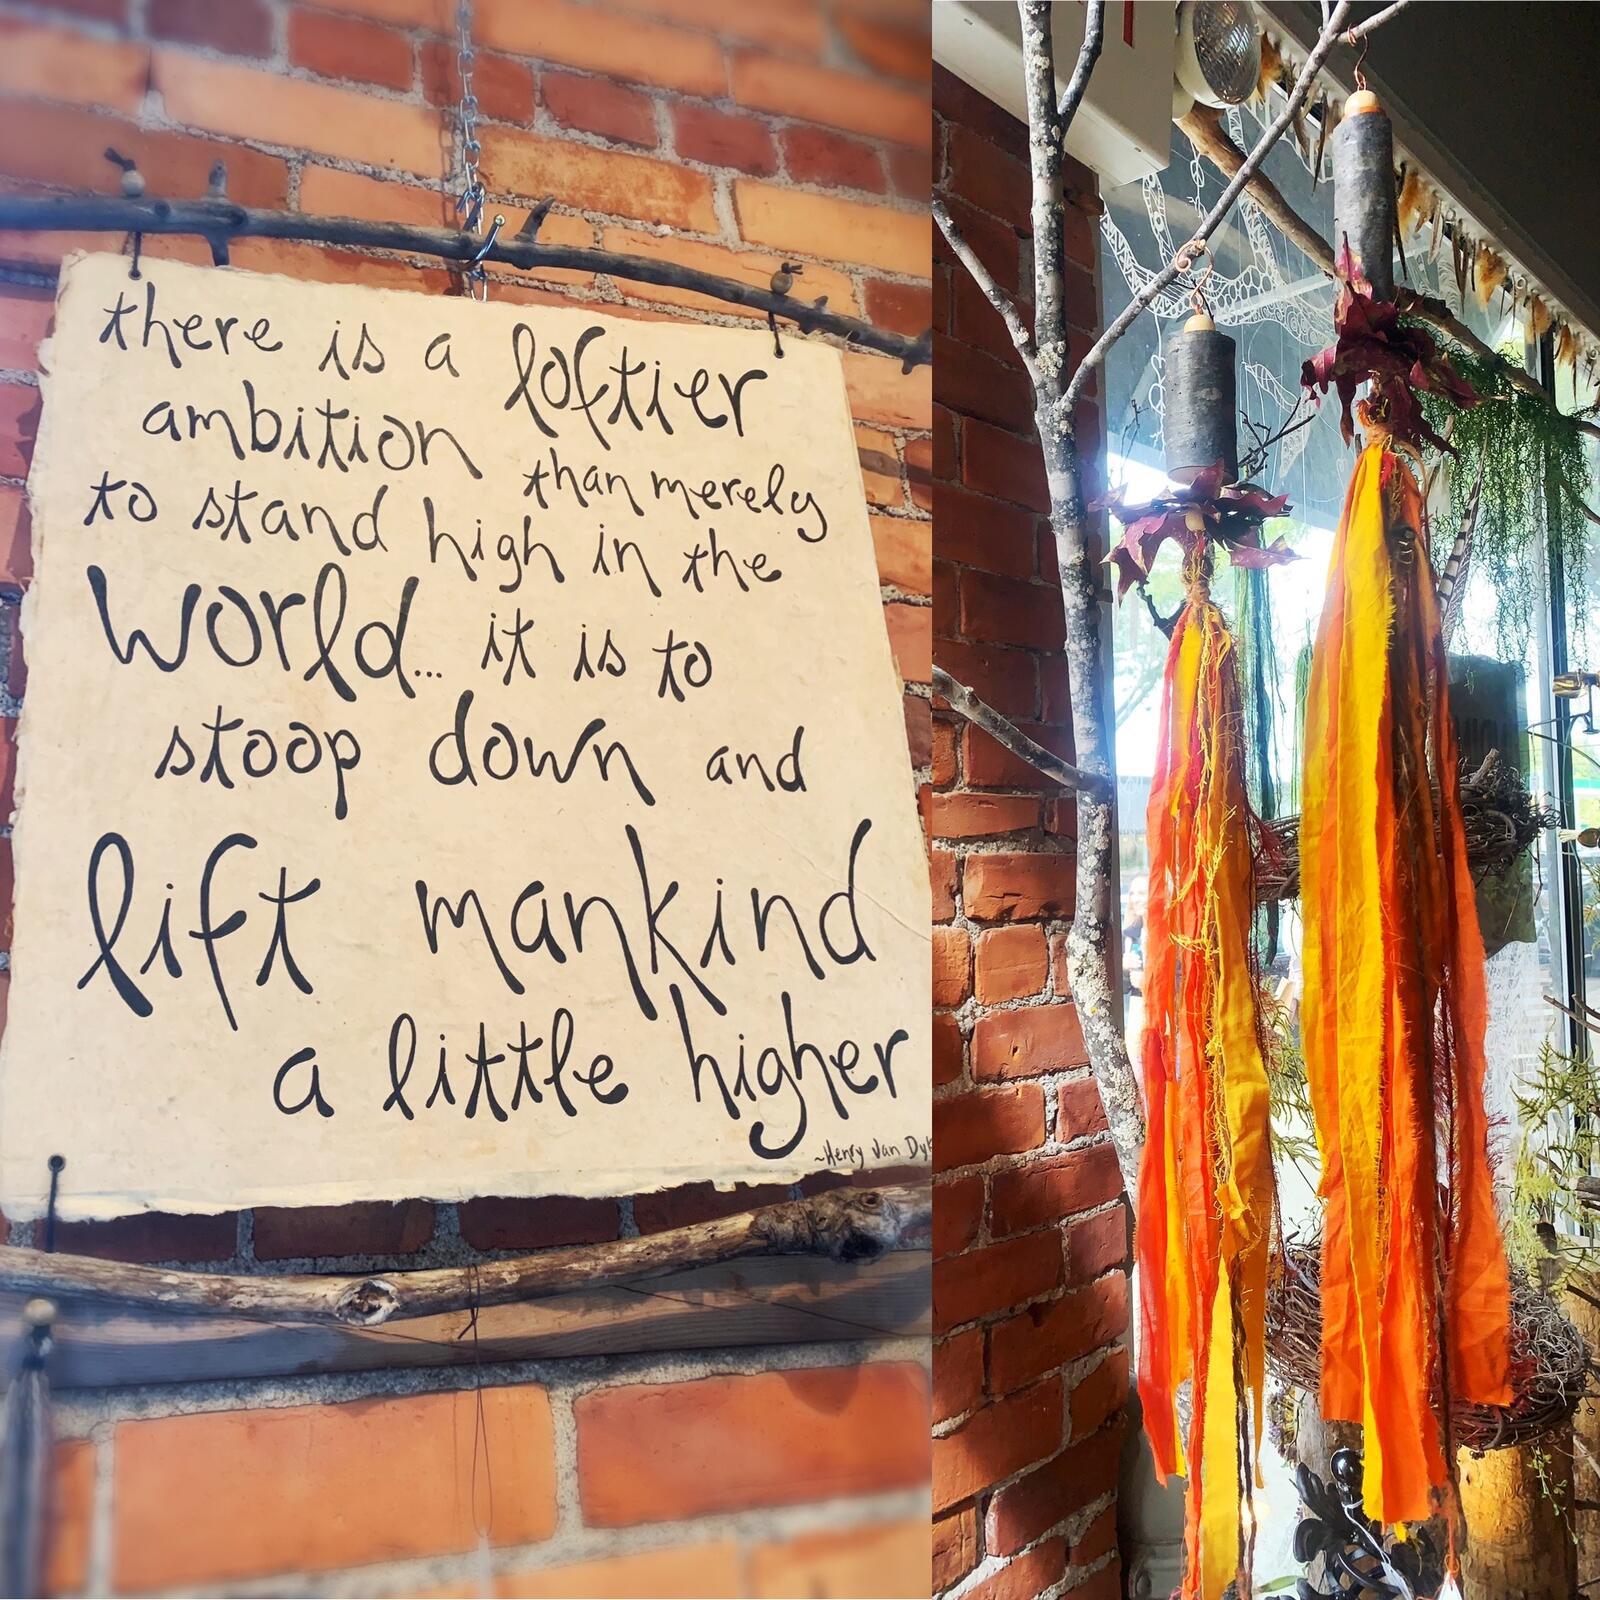 there is a loftier
ambition than merely
to stand high in the
world... it is to
stoop down and
lift mankind
a little higher
~Henry Van Dyk